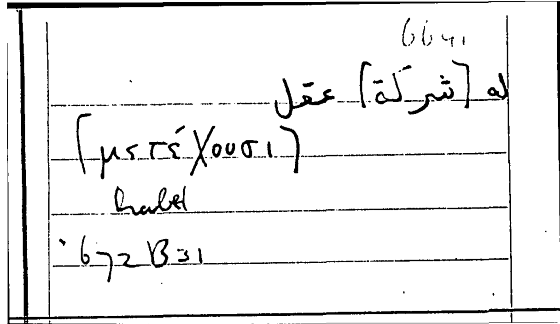 6641
له [شركة] عقل
[μετέχουσι]
habet
672 B 31